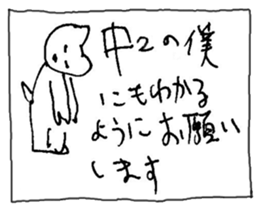 中2の僕
にもわかる
ようにお願い
します